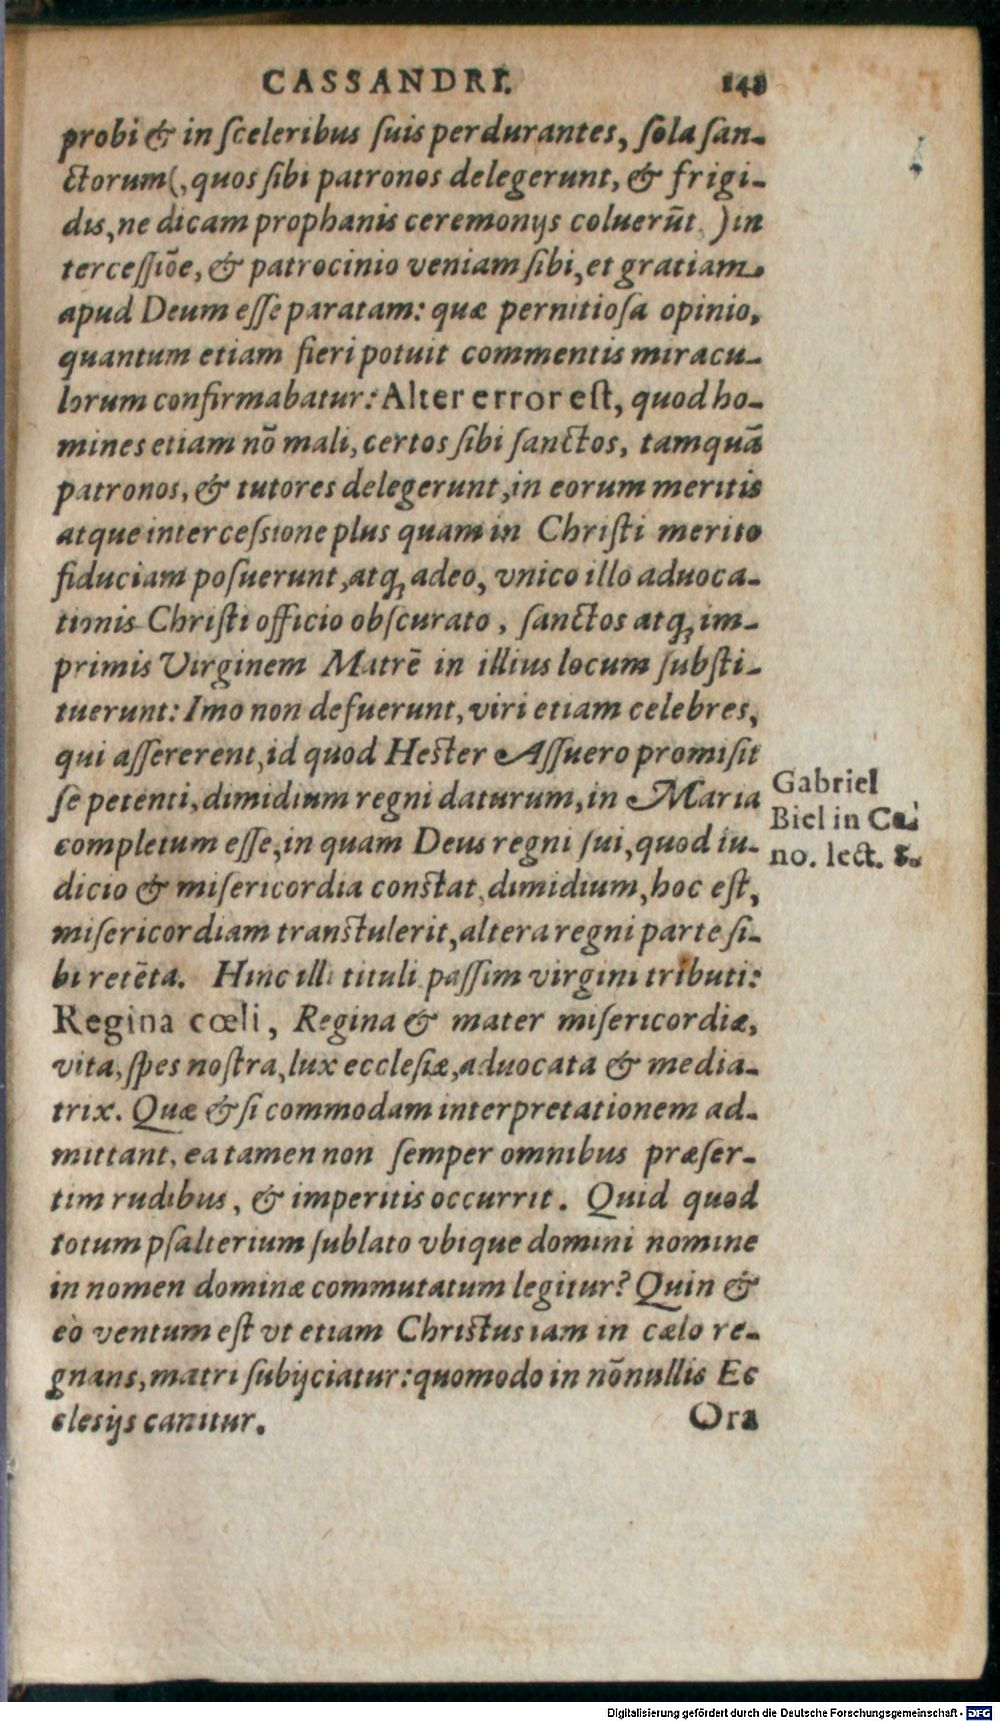 CASSANDRI. 148
probi & in sceleribus suis perdurantes, sola san-
ctorum (, quos sibi patronos delegerunt, & frigi-
dis, ne dicam prophanis ceremonijs coluerūt, ) in
tercessiōe, & patrocinio veniam sibi, et gratiam
apud Deum esse paratam: quæ pernitiosa opinio,
quantum etiam fieri potuit commentis miracu-
lorum confirmabatur: Alter error est, quod ho-
mines etiam nō mali, certos sibi sanctos, tamquā
patronos, & tutores delegerunt, in eorum meritis
atque intercessione plus quam in Christi merito
fiduciam posuerunt, atq; adeo, vnico illo aduoca-
tionis Christi officio obscurato, sanctos atq; im-
primis Virginem Matrē in illius locum substi-
tuerunt: Imo non defuerunt, viri etiam celebres,
qui assererent, id quod Hester Assuero promisit
se petenti, dimidium regni daturum, in Maria
completum esse, in quam Deus regni sui, quod iu-
dicio & misericordia constat, dimidium, hoc est,
misericordiam transtulerit, altera regni parte si-
bi retēta. Hinc illi tituli passim virgini tributi:
Regina cœli, Regina & mater misericordiæ,
vita, spes nostra, lux ecclesiæ, aduocata & media-
trix. Quæ & si commodam interpretationem ad-
mittant, ea tamen non semper omnibus præser-
tim rudibus, & imperitis occurrit. Quid quod
totum psalterium sublato vbique domini nomine
in nomen dominæ commutatum legitur? Quin &
eò ventum est vt etiam Christus iam in cælo re-
gnans, matri subijciatur: quomodo in nōnullis Ec
clesijs canitur.
Ora
Gabriel
Biel in Ca-
no. lect. 8.
Digitalisierung gefördert durch die Deutsche Forschungsgemeinschaft - DFG